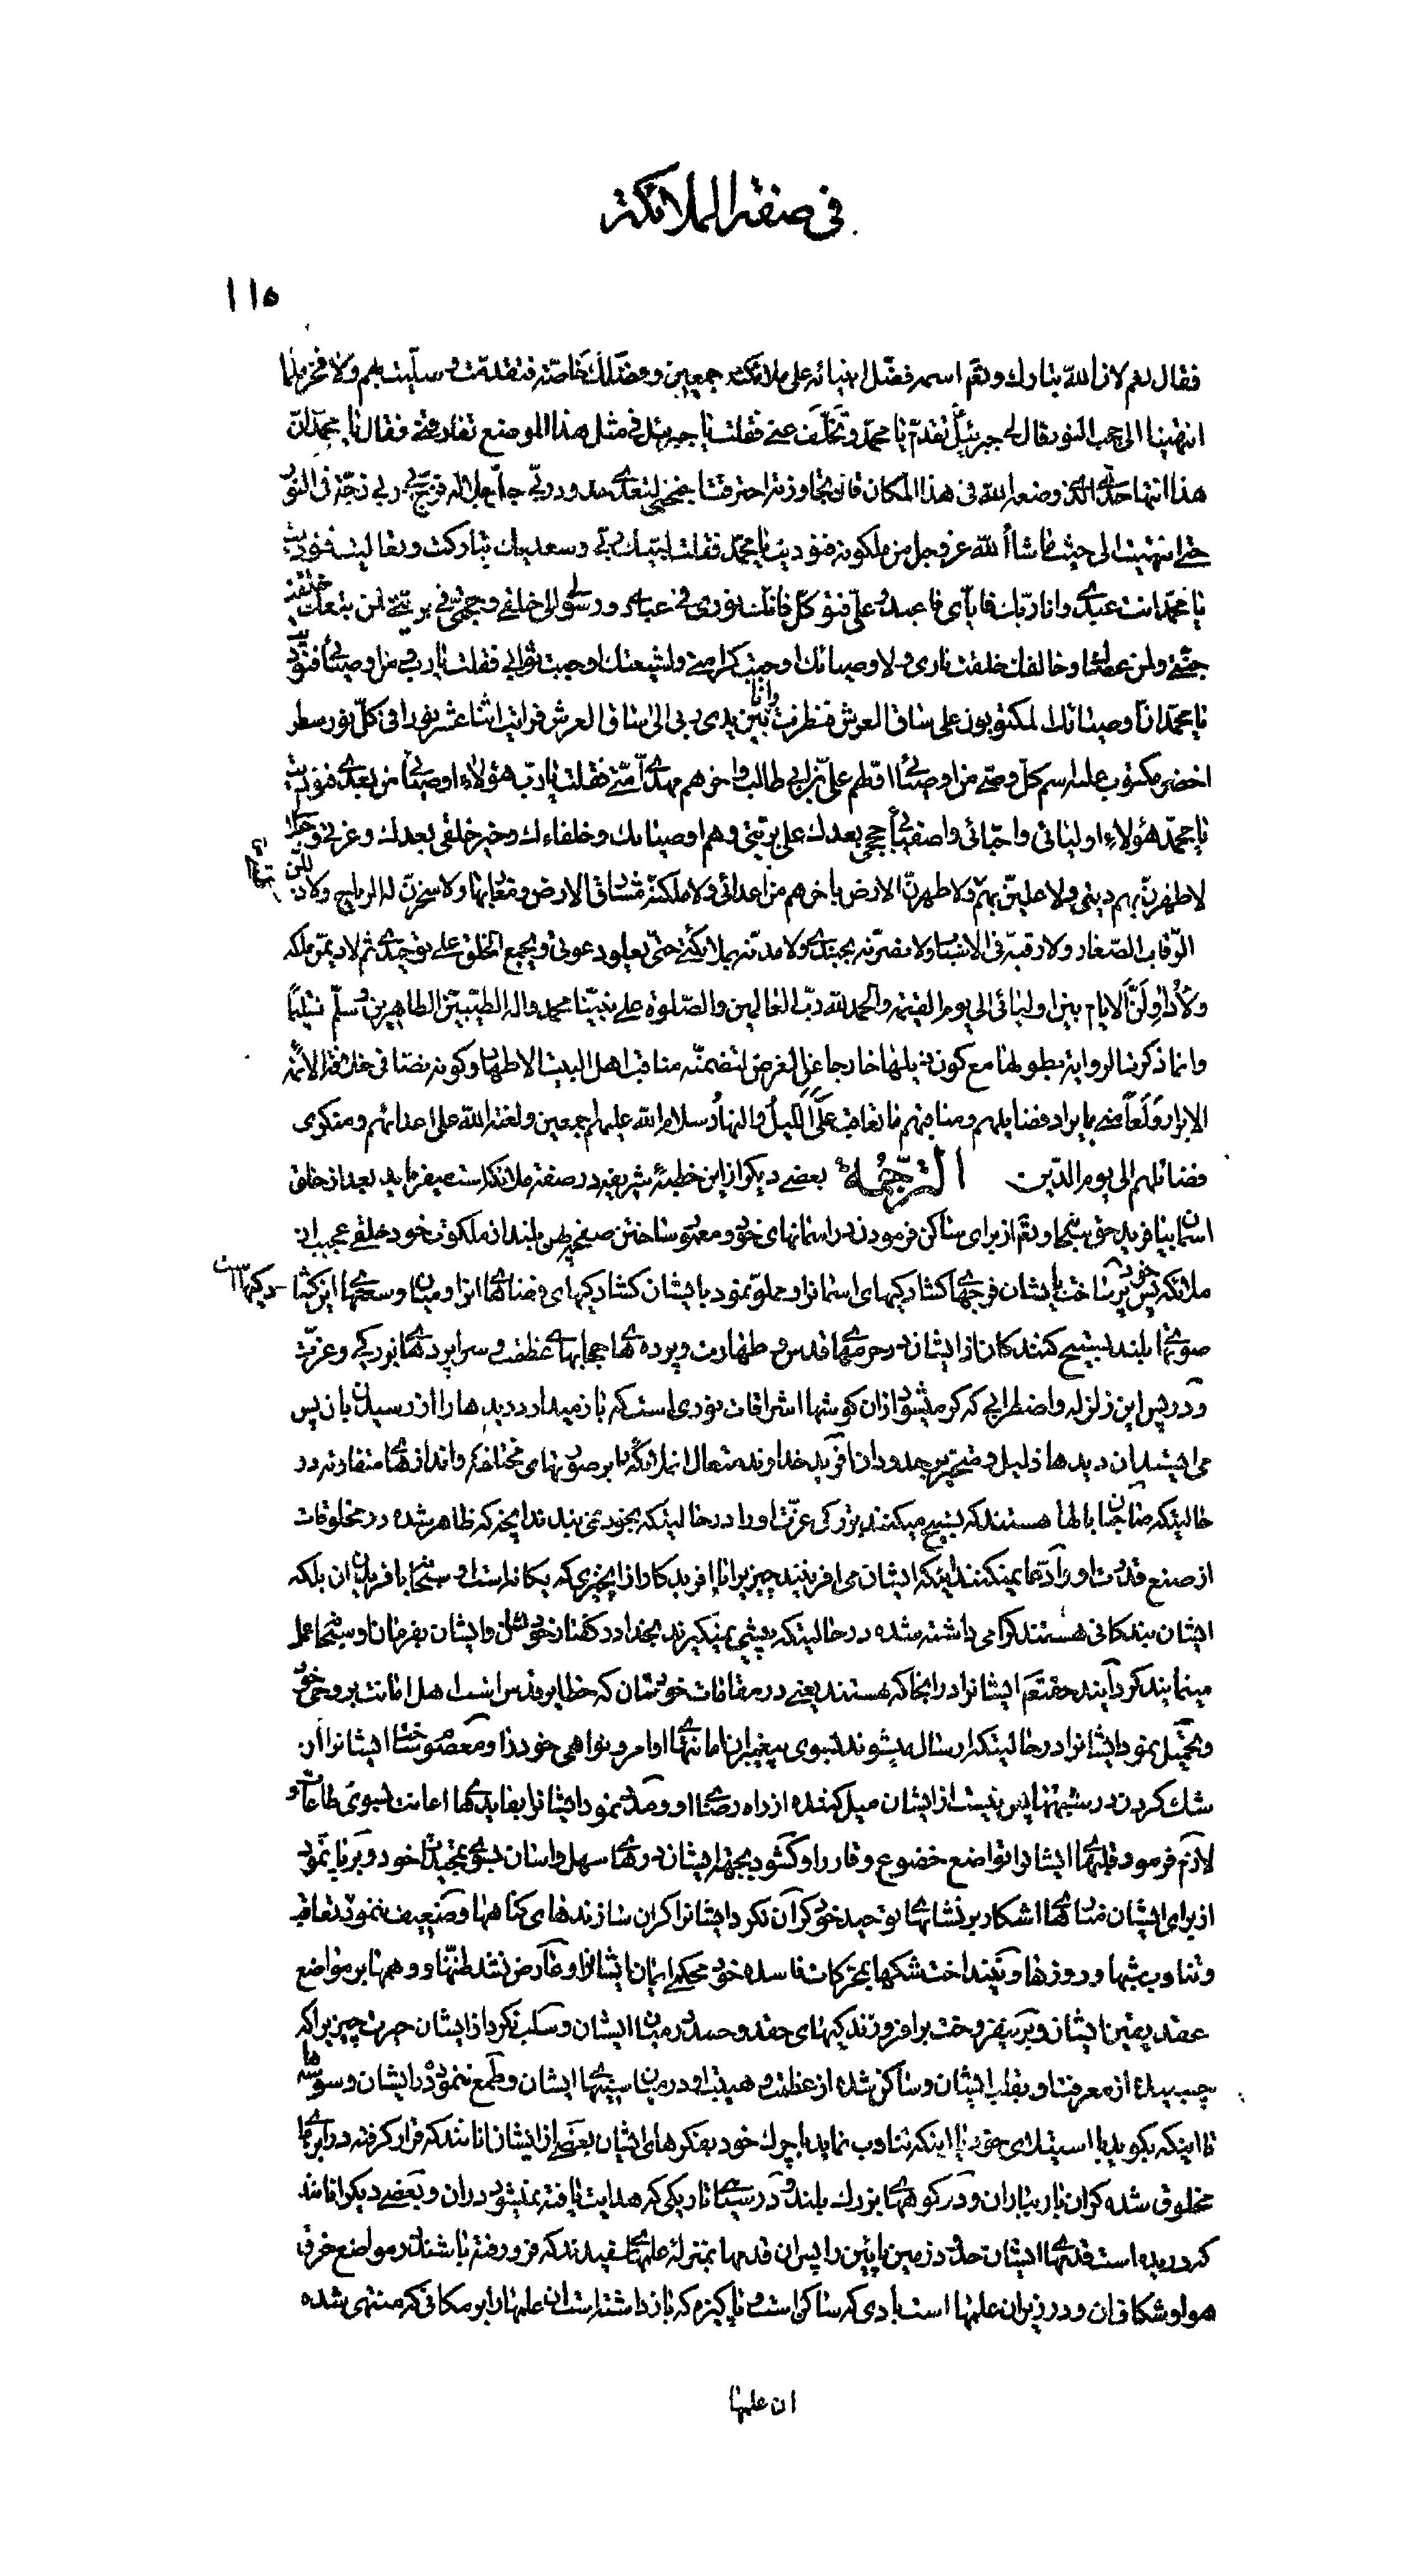 في صفة الملائكة
١١٥
فقال نعم لان الله تبارك وتعم اسمه فضّل انبيائه على ملائكته جمعين وفضّلك خاصّة فتقدمت وصلّيت بهم ولا فخر فلما
انتهينا الى حجب النور قال لي جبرئيل تقدّم يا محمّد وتخلّف عنّي فقلت يا جبرئيل في مثل هذا الموضع تفارقني فقال يا محمّد انّ
هذا انتهاء حدّي الذي وضعه الله في هذا المكان فان تجاوزته احترقت اجنحتي لتعدّي حدود ربّي جلّ جلاله فزجّ بي ربي زجّة في النور
حتّى انتهيت الى حيث ما شاء الله عزوجل من ملكوته فنوديت يا محمّد فقلت لبّيك ربّي وسعديك تباركت وتعاليت فنوديت
يا محمّد انت عبدي وانا ربّك فايّاي فاعبد وعليّ فتوكّل فانّك نوري في عبادي ورسولي الى خلقي وحجّتي في بريّتي لمن تبعك خلقت
جنّتي ولمن عصاك وخالفك خلقت ناري ولاوصيائك اوجبت كرامتي ولشيعتك اوجبت ثوابي فقلت يا ربّ ومن اوصيائي فنوديت
يا محمّد انّ اوصيائك المكتوبون على ساق العرش فنظرت وانا بين يدي ربي الى ساق العرش فرايت اثنا عشر نورا في كلّ نور سطر
اخضر مكتوب عليه اسم كلّ وصيّ من اوصيائي اولهم عليّ بن ابي طالب واخرهم مهدي امّتي فقلت يا ربّ هؤلاء اوصيائي من بعدي فنوديت
يا محمّد هؤلاء اوليائي واحبّائي واصفيائي وحججي بعدك على بريّتي وهم اوصيائك وخلفاءك وخير خلقي بعدك وعزتي وجلالي
لاظهرنّ بهم ديني ولاعلينّ بهم كلمتي ولاطهرنّ الارض باخرهم من اعدائي ولاملكنّه مشارق الارض ومغاربها ولاسخرنّ له الرياح ولاذللنّ
الرّقاب الصّعاب ولارقينّه في الاسباب ولانصرنّه بجندي ولامدنّه بملائكتي حتّى يعلو دعوتي ويجمع الخلق على توحيدي ثم لاديمنّ ملكه
ولاداولنّ الايام بين اوليائي الى يوم القيمة والحمد لله ربّ العالمين والصّلوة على نبيّنا محمد واله الطيّبين الطاهرين وسلّم تسليما
وانما ذكرنا الرواية بطولها مع كون ذيلها خارجا عن الغرض لتضمنّه مناقب اهل البيت الاطهار وكونه نصّا في خلافة الائمة
الابرار ولعا منّي بايراد فضايلهم ومناقبهم ما تعاقب عليّ الليل والنهار سلام الله عليهم اجمعين ولعنة الله على اعدائهم ومنكري
فضائلهم الى يوم الدّين الترجمة بعضى ديكر از اين خطبه شريفه در صفة ملائكه است ميفرمايد بعد از خلق
اسمان بيافريد حق سبحانه وتعم از براى ساكن فرمودن در اسمانهاى خود ومعمور ساختن صفحه بلند از ملكوت خود خلقى عجيب از
ملائكه خود پس پر ساخت بايشان فرجهاى كشادكيهاى اسمانرا ومملوّ نمود بايشان كشادكيهاى فضاهاى انرا وميان وسعتهاى اين كشادكيها است
صوتهاى بلند تسبيح كنندكان از ايشان در حرمهاى قدس وطهارت وپرده هاى حجابهاى عظمت وسراپردهاى بزركى وعزّت
ودر پس اين زلزله واضطرابى كه كر ميشود از ان كوشها اشراقات نورى است كه باز ميدارد ديدها را از رسيدن بان پس
مى ايستد ان ديدها ذليل ومتحير بر حدود ان افريد خداوند متعال ان ملائكه را بر صورتهاى مختلفه واندازهاى متفاوته در
حالتيكه صاحبان بالها هستند كه تسبيح ميكنند بزركى عزّت او را در حالتيكه بخود نمى بندند انچه كه ظاهر شده در مخلوقات
از صنع قدرت او وادّعا نميكنند اينكه ايشان مى افرينند چيزيرا با افريدكار از انچيزى كه يكانه است او سبحانه بافريدن ان بلكه
ايشان بندكانى هستند كرامى داشته شده در حالتيكه پيشى نميكيرند بخدا در كفتار خودشان وايشان بفرمان او سبحانه عمل
مينمايند كردانيد حقتعم ايشانرا در انجا كه هستند يعنى در مقامات خودشان كه حظاير قدس است اهل امانت بر وحى خود
وتحميل نمود ايشانرا در حالتيكه ارسال ميشوند بسوى پيغمبران امانتهاى اوامر ونواهى خود را ومعصوم ساخت ايشانرا از
شك كردن در شبهتها پس نيست از ايشان ميل كننده از راه رضاى او ومدد نمود ايشانرا بفايدهاى اعانت بسوى طاعات و
لازم فرمود قلبهاى ايشانرا تواضع خضوع وقار را وكشود بجهة ايشان درهاى سهل واسان بسوى تمجيدات خود وبرپا نمود
از براى ايشان منارهاى اشكار بر نشانهاى توحيد خود كران نكرد ايشانرا كران سازندهاى كناهها وضعيف ننمود تعاقب
وتناوب شبها وروزها ونينداخت شكها بحركات فاسده خود محكمى ايمان ايشانرا وعارض نشد ظنّها ووهمها بر مواضع
عقد يقين ايشان وبر نيفروخت بر افروزندكيهاى حقد وحسد در ميان ايشان وسلب نكرد از ايشان حيرت چيزيرا كه
چسبيده از معرفت او بقلب ايشان وساكن شده از عظمت وهيبت او در ميان سينهاى ايشان وطمع ننمود در ايشان وسوسها
تا اينكه بكوبد با استيلاى خود يا اينكه تناوب نمايد با چرك خود بفكرهاى ايشان بعضى از ايشان انانند كه قرار كرفته در ابرهاى
مخلوق شده كران بار بباران ودر كوههاى بزرك بلند ودر سياهى تاريكى كه هدايت يافته نميشود در ان وبعضى ديكر انانند
كه دريده است قدمهاى ايشان حدود زمين پائين را پس ان قدمها بمنزله علمهاى سفيدند كه فرو رفته باشند در مواضع خرق
هوا وشكاف ان ودر زير ان علمها است بادى كه ساكن است وپاكيزه كه باز داشته است ان علمها را بر مكانى كه منتهى شده
ان علمها